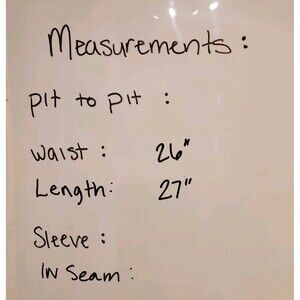 Measurements :
pit to pit :
waist : 26"
Length: 27"
Sleeve :
In Seam :